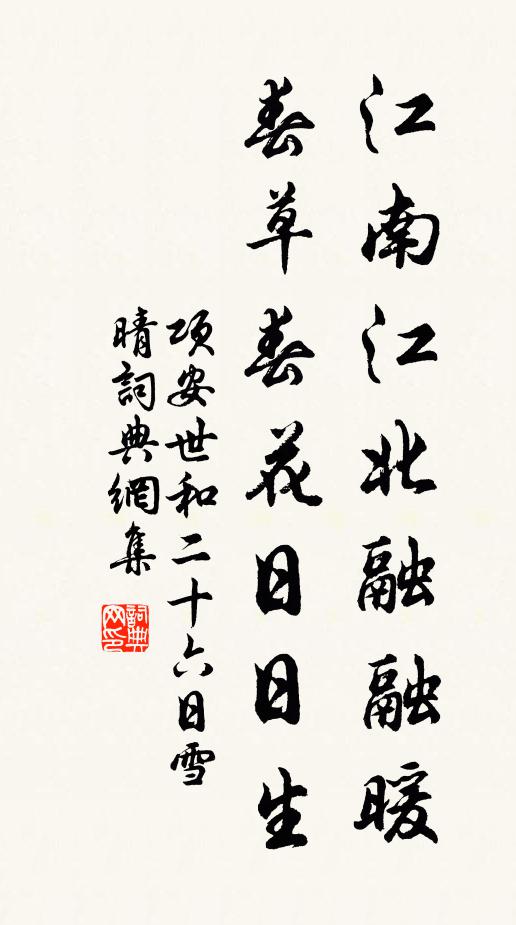 江南江北融融暖
春草春花日日生
項安世和二十六日雪
晴詞典網集
詞典网印